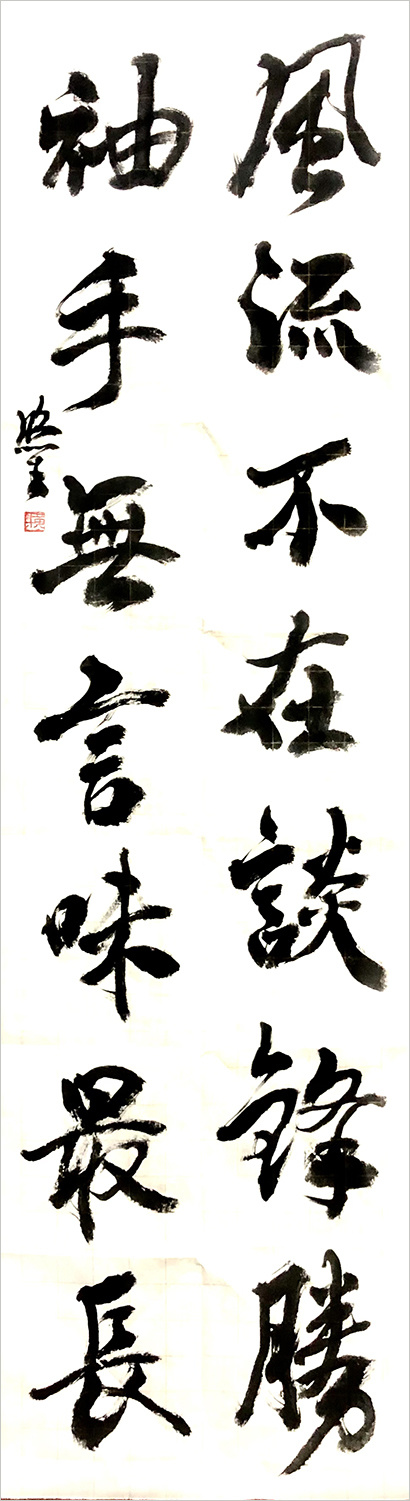 風流不在談鋒勝
袖手無言味最長